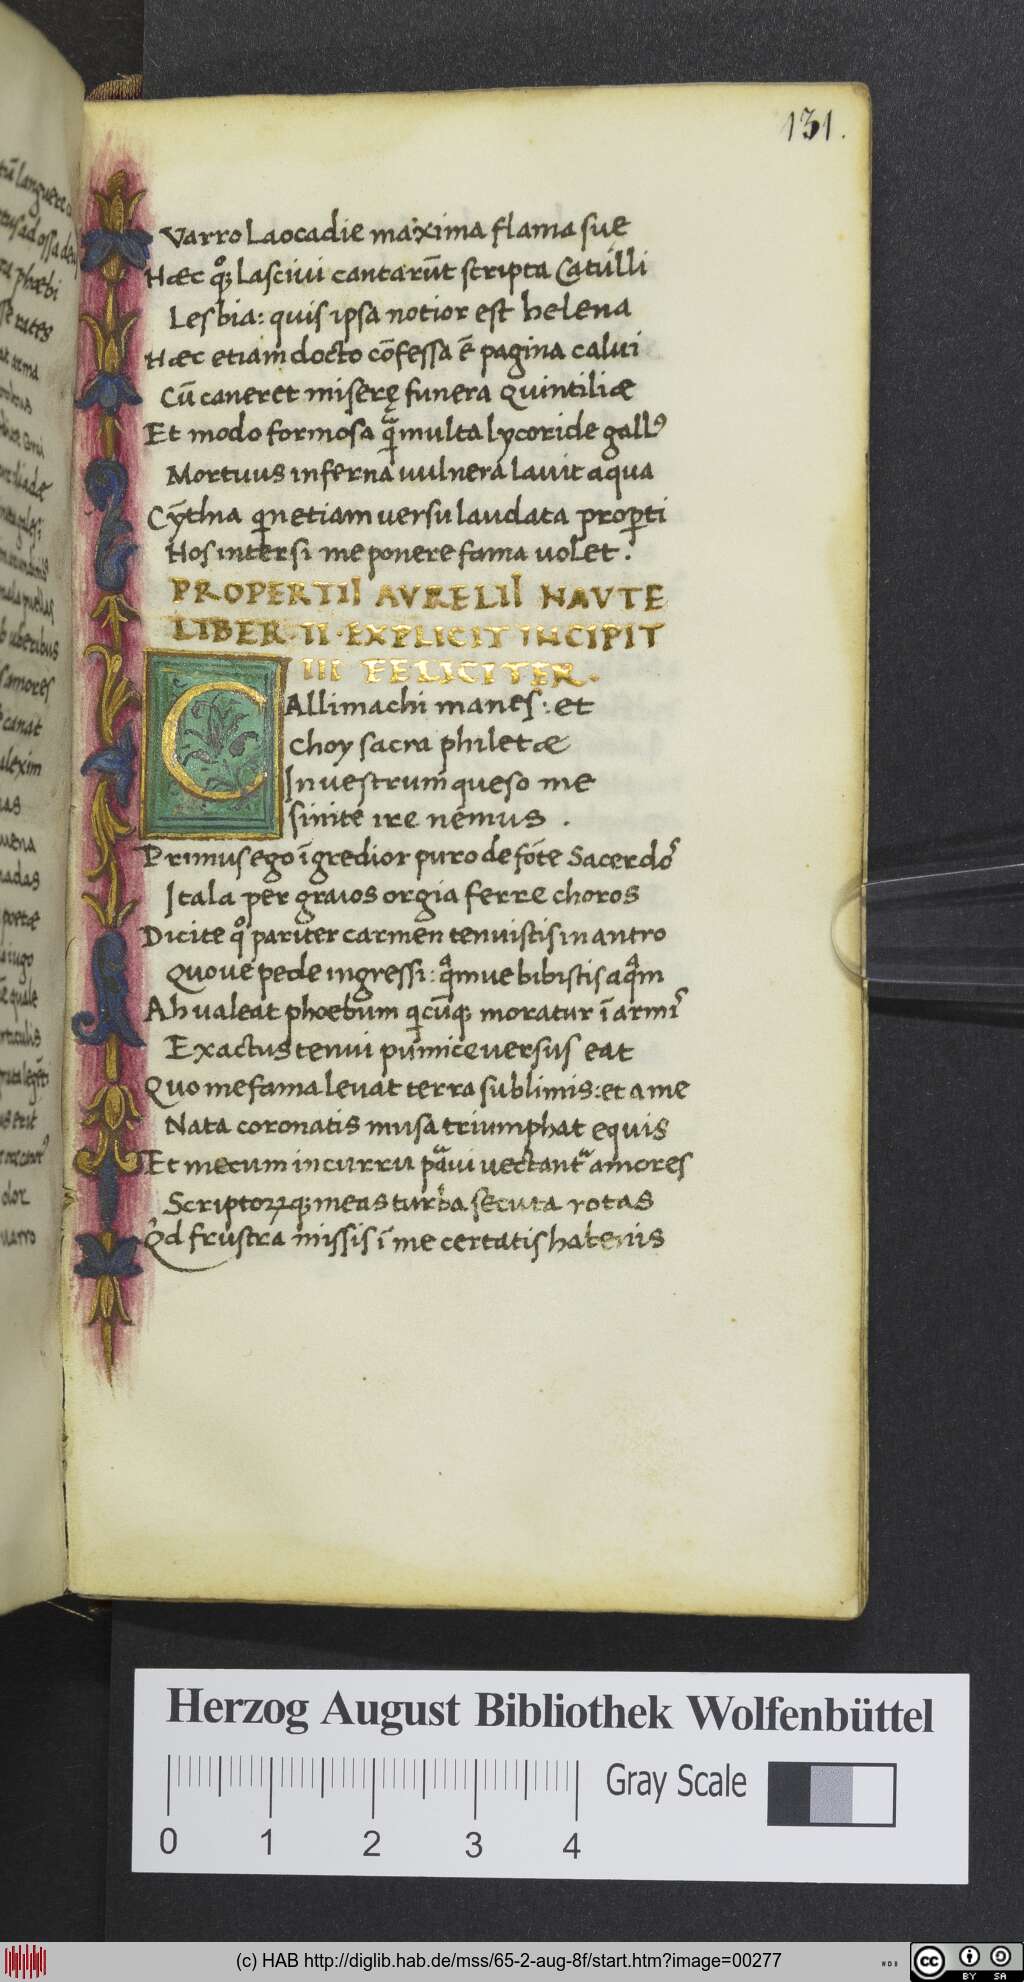 131.
Varro Laocadie maxima flama sue
Hæc qͦꝫ lascivi cantarūt scripta Catulli
Lesbia: quis ipsa notior est helena
Hæc etiam docto cōfessa ē pagina calvi
Cū caneret miserę funera Quintiliæ
Et modo formosa qͣ̄ multa lycoride gallꝰ
Mortuus inferna vulnera lavit aqua
Cȳthia qnetiam versu laudata properti
Hos inter si me ponere fama volet.
PROPERTII AVRELII NAVTE
LIBER·II·EXPLICIT INCIPIT
III FELICITER.
CAllimachi manes: et
Choy sacra philetæ
In vestrum queso me
sinite ire nemus.
Primus ego īgredior puro de fōte Sacerdoˢ
Itala per graios orgia ferre choros
Dicite qͦ pariter carmen tenuistis in antro
Quove pede ingressi: qͣmve bibistis aqͣm
Ah valeat phoebum qcūqꝫ moratur ī armiˢ
Exactus tenui pumice versus eat
Quo me fama levat terra sublimis: et a me
Nata coronatis musa triumphat equis
Et mecum in curru pͣvi vectantͬ amores
Scriptoꝝqꝫ meas turba secuta rotas
Qd frustra missis ī me certatis habenis
languere
phœbi
arma
puellas
uberibus
amores
canat
alexim
poetæ
quale
dolor
varro
Herzog August Bibliothek Wolfenbüttel
Gray Scale
0 1 2 3 4
(c) HAB http://diglib.hab.de/mss/65-2-aug-8f/start.htm?image=00277
cc BY SA